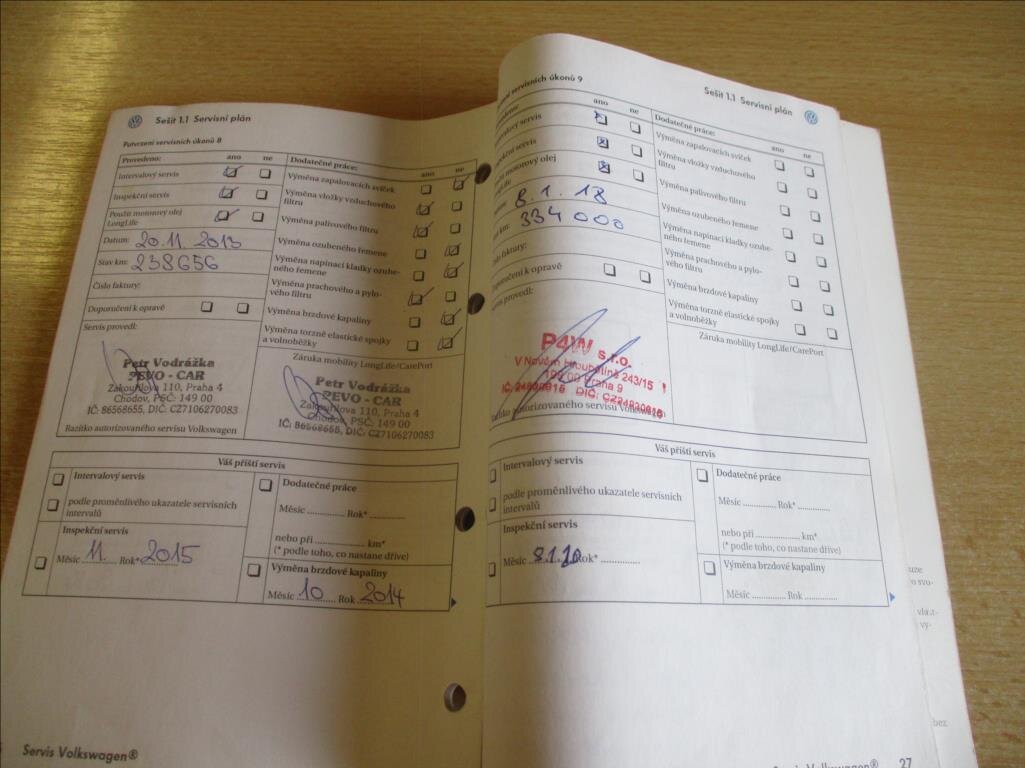 Sešit 1.1 Servisní plán
Potvrzení servisních úkonů 8
Provedeno: ano ne
Intervalový servis
Inspekční servis
Použit motorový olej
LongLife
Datum: 20.11.2013
Stav km: 238656
Číslo faktury:
Doporučení k opravě
Servis provedl:
Petr Vodrážka
PEVO - CAR
Zakouřilova 110, Praha 4
Chodov, PSČ: 149 00
IČ: 86568655, DIČ: CZ7106270083
Razítko autorizovaného servisu Volkswagen
Dodatečné práce: ano ne
Výměna zapalovacích svíček
Výměna vložky vzduchového
filtru
Výměna palivového filtru
Výměna ozubeného řemene
Výměna napínací kladky ozube-
ného řemene
Výměna prachového a pylo-
vého filtru
Výměna brzdové kapaliny
Výměna torzně elastické spojky
a volnoběžky
Záruka mobility LongLife/CarePort
Petr Vodrážka
PEVO - CAR
Zakouřilova 110, Praha 4
Chodov, PSČ: 149 00
IČ: 86568655, DIČ: CZ7106270083
Váš příští servis
Intervalový servis
podle proměnlivého ukazatele servisních
intervalů
Inspekční servis
Měsíc 11. Rok* 2015
Dodatečné práce
Měsíc ............. Rok* ............
nebo při ................. km*
(* podle toho, co nastane dříve)
Výměna brzdové kapaliny
Měsíc 10 Rok 2014
Servis Volkswagen®
Sešit 1.1 Servisní plán
servisních úkonů 9
ano ne
servis
servis
motorový olej
8.1.18
km: 334 000
faktury:
Doporučení k opravě
provedl:
P4W s.r.o.
V Novém Hloubětíně 243/15
Praha 9
Razítko autorizovaného servisu Volkswagen
Dodatečné práce: ano ne
Výměna zapalovacích svíček
Výměna vložky vzduchového
filtru
Výměna palivového filtru
Výměna ozubeného řemene
Výměna napínací kladky ozube-
ného řemene
Výměna prachového a pylo-
vého filtru
Výměna brzdové kapaliny
Výměna torzně elastické spojky
a volnoběžky
Záruka mobility LongLife/CarePort
Váš příští servis
Intervalový servis
podle proměnlivého ukazatele servisních
intervalů
Inspekční servis
Měsíc Rok* .............
Dodatečné práce
Měsíc ............. Rok* ............
nebo při ................. km*
(* podle toho, co nastane dříve)
Výměna brzdové kapaliny
Měsíc ............ Rok ............
Servis Volkswagen® 27